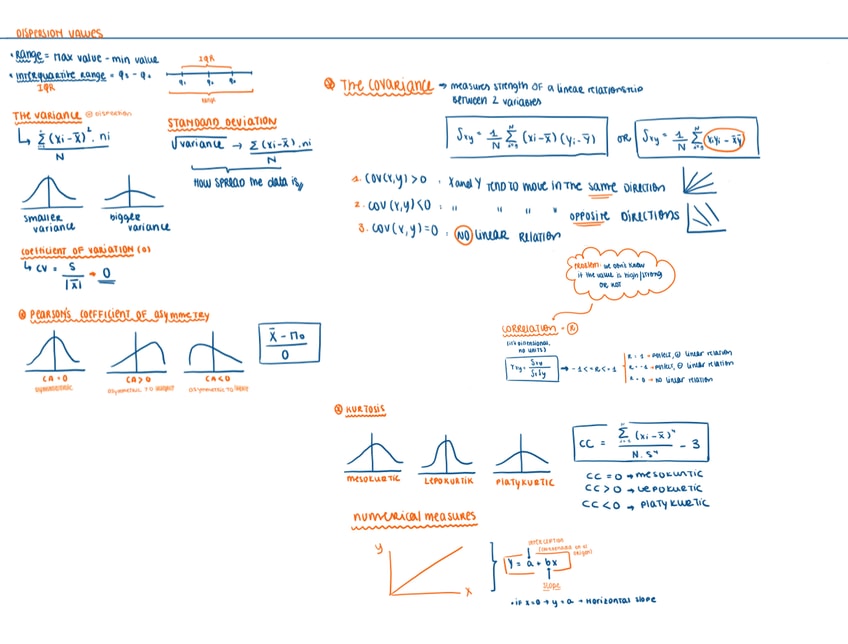 DISPERSION VALUES
• Range = max value - min value
• Interquartile Range = q3 - q1
IQR
IQR
q1 q2 q3
range
THE VARIANCE @ Dispersion
↳ Σ (xi - x̄)² . ni
N
STANDARD DEVIATION
√variance → Σ (xi - x̄) . ni
N
HOW SPREAD THE DATA IS
smaller variance
bigger variance
COEFFICIENT OF VARIATION (0)
↳ CV = S / |x̄| → 0
PEARSON'S COEFFICIENT OF ASYMMETRY
CA = 0
CA > 0
CA < 0
symmetric
asymmetric to right
asymmetric to left
x̄ - Mo
0
THE COVARIANCE → measures strength of a linear relationship
between 2 variables
Sxy = 1/N Σ (xi - x̄) (yi - ȳ) OR Sxy = 1/N Σ xiyi - x̄ȳ
1. COV(x,y) > 0 . X and Y TEND TO move in THE SAME DIRECTION
2. COV (x,y) < 0 . " " " OPPOSITE DIRECTIONS
3. COV (x,y) = 0 . NO LINEAR RELATION
Problem: we don't know
if the value is high/strong
or not
CORRELATION - R
no units)
rxy = Sxy / Sx Sy → -1 < r < 1
R = 1 → perfect, ⊕ linear relation
R = -1 → perfect, ⊖ linear relation
R = 0 → no linear relation
KURTOSIS
MESOKURTIC
LEPOKURTIK
PLATYKURTIC
CC = Σ (xi - x̄)⁴ / N . S⁴ - 3
CC = 0 → mesokurtic
CC > 0 → LEPOKURTIC
CC < 0 → PLATYKURTIC
numerical measures
y
x
y = a + bx
slope
• if x = 0 → y = a → Horizontal slope